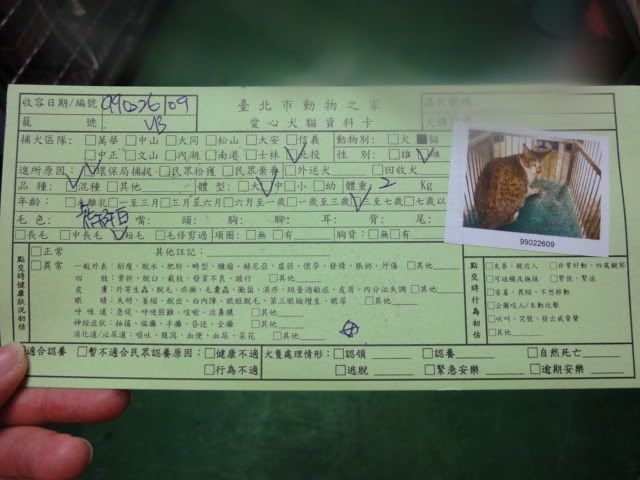 收容日期/編號 99022609
臺北市動物之家
籠號 VB
愛心犬貓資料卡
補犬區隊: □萬華 □中山 □大同 □松山 □大安 □信義 動物別: □犬 ■貓
□中正 □文山 □內湖 □南港 □士林 ☑北投 性別: □雄 ☑雌
進所原因: □環保局捕捉 □民眾拾獲 □民眾棄養 □外送犬 □回收犬
品種: ☑混種 □其他 體型: □大 ☑中 □小 □幼 體重: 2 Kg
年齡: □離乳 □一至三月 □三月至六月 □六月至一歲 □一歲至三歲 ☑三至七歲 □七歲以
毛色: 嘴: 頭: 胸: 腳: 耳: 背: 尾:
□長毛 □中長毛 ☑短毛 □毛修剪過 項圈: □無 □有 胸背: □無 □有
99022609
點交時健康狀況初估
□正常 其他註記:
□異常 一般外表: 削瘦、脫水、肥胖、畸型、腫瘤、赫尼亞、虛弱、懷孕、發情、脹奶、外傷 □其他
四肢: 骨折、脫臼、截肢、發育不良、跛行 □其他
皮膚: 外寄生蟲、脫毛、疥癬、毛囊蟲、黴菌、濕疹、跳蚤過敏症、皮屑、內分泌失調 □其他
眼睛: 失明、萎縮、脫出、白內障、眼瞼脫毛、第三眼瞼增生、眼屎 □其他
呼吸道: 急促、呼吸困難、咳嗽、流鼻膿 □其他
神經症狀: 抽搐、偏癱、半癱、昏迷、全癱 □其他
消化道/泌尿道: 嘔吐、腹瀉、血便、血尿、菜花 □其他
點交時行為初估
□友善、親近人 □非常好動、四處觀察
□可碰觸及撫摸 □緊張、緊迫
□害羞、畏縮、不想移動
□企圖咬人/主動攻擊
□吠叫、哭號、發出威脅聲
□其他
☑適合認養 □暫不適合民眾認養原因: □健康不適 犬隻處理情形: □認領 □認養 □自然死亡
□行為不適 □逃脫 □緊急安樂 □逾期安樂